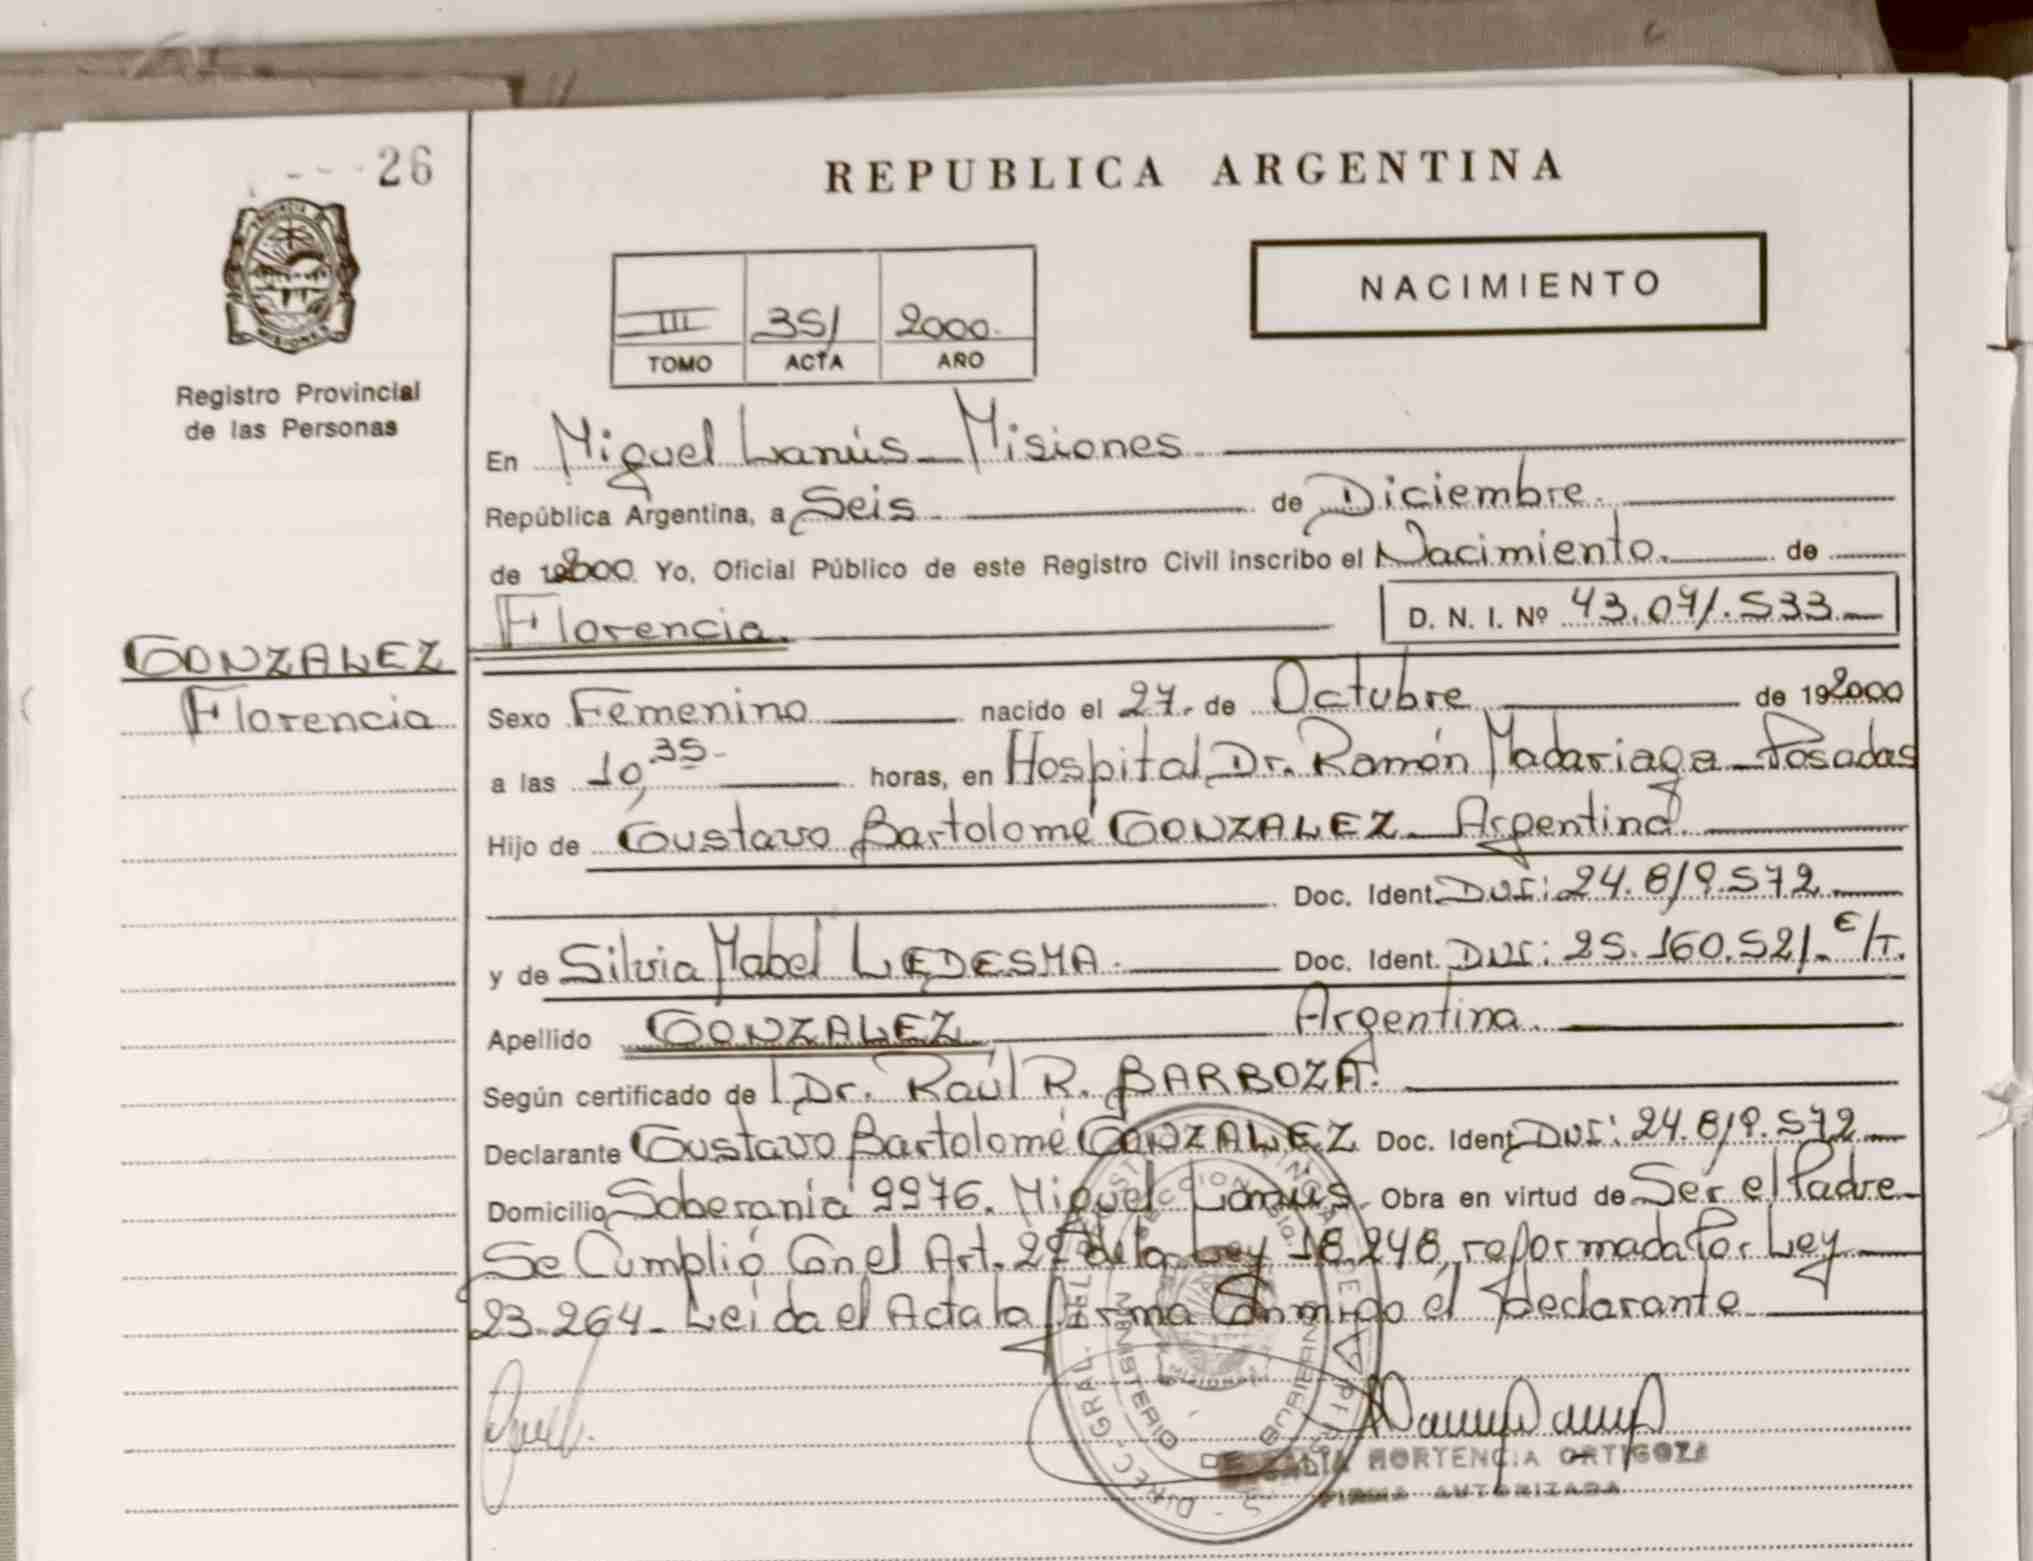 26
REPUBLICA ARGENTINA
NACIMIENTO
III 351 2000.
TOMO ACTA AÑO
Registro Provincial
de las Personas
En Miguel Lanús - Misiones
República Argentina, a Seis de Diciembre.
de 2000. Yo, Oficial Público de este Registro Civil inscribo el Nacimiento. de
Florencia. D. N. I. Nº 43.071.533
GONZALEZ
Florencia
Sexo Femenino nacido el 27. de Octubre de 19 2000
a las 10,35 horas, en Hospital Dr. Ramón Madariaga - Posadas
Hijo de Gustavo Bartolomé GONZALEZ - Argentina
Doc. Ident. DNI: 24.819.572
y de Silvia Mabel LEDESMA. Doc. Ident. DNI: 25.160.521. C/T.
Apellido GONZALEZ Argentina.
Según certificado de Dr. Raúl R. BARBOZA.
Declarante Gustavo Bartolomé GONZALEZ Doc. Ident. DNI: 24.819.572
Domicilio Soberanía 9976. Miguel Lanús. Obra en virtud de Ser el Padre
Se Cumplió Con el Art. 2º de la Ley 18.248, reformada Por Ley
23.264 - Leída el Acta la firma Conmigo el Declarante
HORTENCIA ORTIGOZA
FIRMA AUTORIZADA